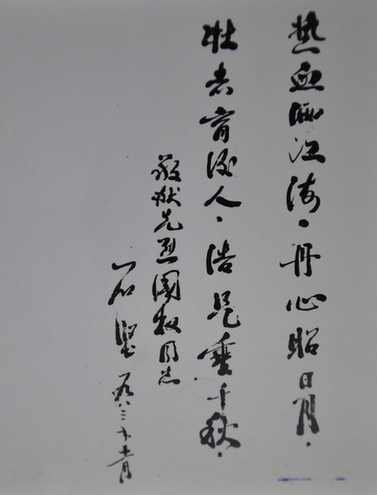 热血洒江海，丹心昭日月。
壮志育後人，浩气垂千秋。
敬献先烈国权同志
石坚 一九八三·十一月